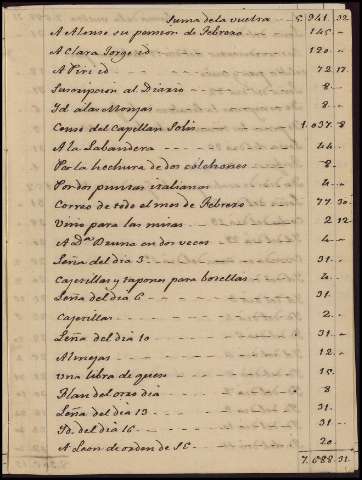 Suma de la vuelta 5.941. 32
A Alonso su pension de Febrero 145. -
A Clara Jorge id 120. -
A id 72. 17
Suscripcion al Diario 8. -
Id a las Monjas 8. -
Censo del Capellan Solis 1.037. 8
A la Labandera 44. -
Por la hechura de dos colchones 8. -
Por dos italianas 4. -
Correo de todo el mes de Febrero 77. 30
Vino para las misas 2. 12
A Dª Bruna en dos veces 4. -
Leña del dia 3 31. -
Cajerillas y tapones para botellas 4. -
Leña del dia 6 31.
Cajerillas 2. -
Leña del dia 10 31. -
Almejas 12. -
Una libra de queso 15.
Flan del otro dia 8
Leña del dia 13 31.
Id. del dia 16 31.
A Leon de orden de S E 20.
7.688. 31